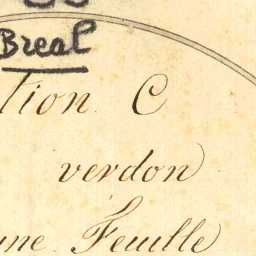 Breal
tion C
verdon
une Feuille